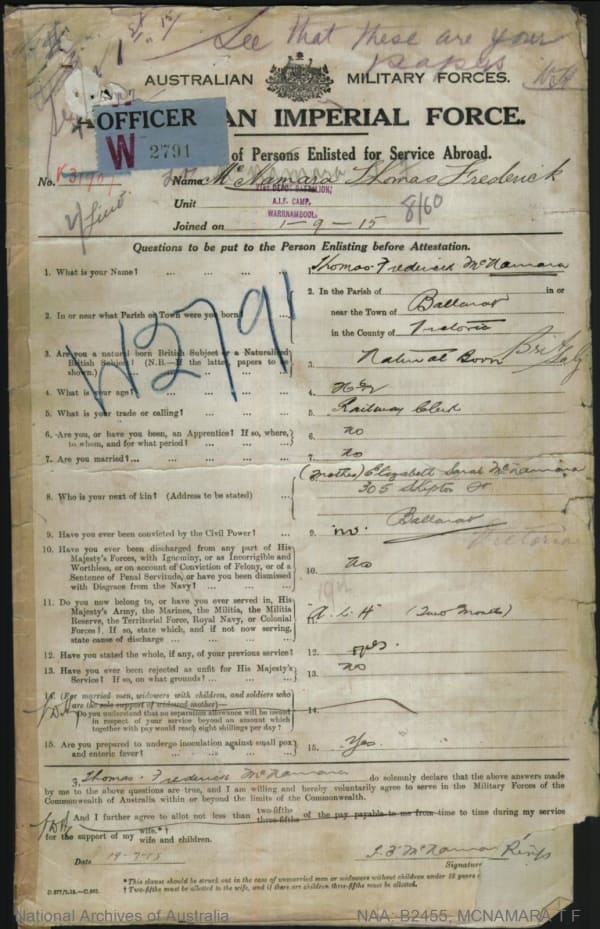 See that these are your
papers
AUSTRALIAN MILITARY FORCES.
OFFICER AN IMPERIAL FORCE.
W 2791
of Persons Enlisted for Service Abroad.
No. Name McNamara Thomas Frederick
2/Lieut
Unit A.I.F. CAMP, 8/60
WARRNAMBOOL
Joined on 1-9-15
Questions to be put to the Person Enlisting before Attestation.
1. What is your Name? ... ... ... ... Thomas Frederick McNamara
2. In or near what Parish or Town were you born? ... 2. In the Parish of in or
near the Town of Ballarat
in the County of Victoria
W2791
3. Are you a natural born British Subject or a Naturalized British Subject? (N.B.—If the latter, papers to be shown.) 3. Natural Born
4. What is your age? 4.
5. What is your trade or calling? 5. Railway Clerk
6. Are you, or have you been, an Apprentice? If so, where, to whom, and for what period? 6. no
7. Are you married? 7. no
8. Who is your next of kin? (Address to be stated) (Mother) Elizabeth Sarah McNamara
305 Skipton St
Ballarat
Victoria
9. Have you ever been convicted by the Civil Power? 9. no.
10. Have you ever been discharged from any part of His
Majesty's Forces, with Ignominy, or as Incorrigible and
Worthless, or on account of Conviction of Felony, or of a
Sentence of Penal Servitude, or have you been dismissed
with Disgrace from the Navy? 10. no
11. Do you now belong to, or have you ever served in, His
Majesty's Army, the Marines, the Militia, the Militia
Reserve, the Territorial Force, Royal Navy, or Colonial
Forces? If so, state which, and if not now serving,
state cause of discharge A.L.H (Two Months)
12. Have you stated the whole, if any, of your previous service? 12. yes.
13. Have you ever been rejected as unfit for His Majesty's
Service? If so, on what grounds? 13. no
14. (For married men, widowers with children, and soldiers who
are the sole support of widowed mother)—
Do you understand that no separation allowance will be issued
in respect of your service beyond an amount which
together with pay would reach eight shillings per day? 14.
15. Are you prepared to undergo inoculation against small pox
and enteric fever? 15. Yes.
I, Thomas Frederick McNamara do solemnly declare that the above answers made
by me to the above questions are true, and I am willing and hereby voluntarily agree to serve in the Military Forces of the
Commonwealth of Australia within or beyond the limits of the Commonwealth.
And I further agree to allot not less than two-fifths three-fifths of the pay payable to me from time to time during my service
for the support of my wife.*† wife and children.
Date
Signature
*This clause should be struck out in the case of unmarried men or widowers without children under 18 years
†Two-fifths must be allotted to the wife, and if there are children three-fifths must be allotted.
National Archives of Australia NAA: B2455, MCNAMARA T F